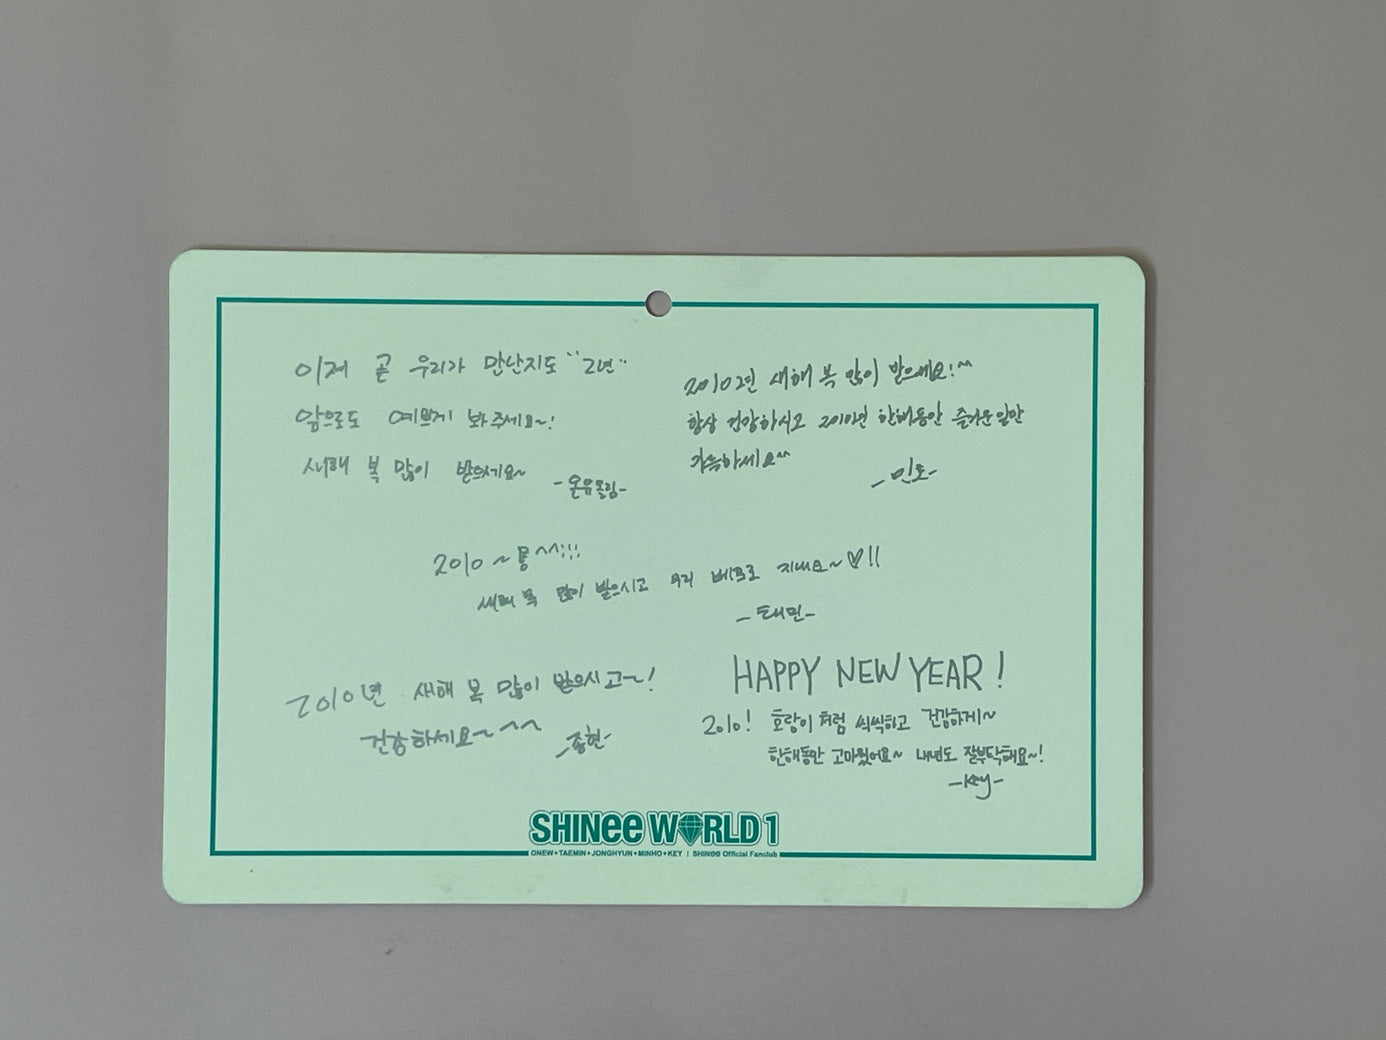 이제 곧 우리가 만난지도 "2년"
앞으로도 예쁘게 봐주세요~!
새해 복 많이 받으세요~
-온유올림-
2010년 새해 복 많이 받으세요!^^
항상 건강하시고 2010년 한해동안 즐거운일만
가득하세요^^
-민호-
2010~뿅^^!!!
새해 복 많이 받으시고 우리 베프로 지내요~♡!!
-태민-
2010년 새해 복 많이 받으시고~!
건강하세요~~^^
-종현-
HAPPY NEW YEAR!
2010! 호랑이처럼 씩씩하고 건강하게~
한해동안 고마웠어요~ 내년도 잘부탁해요~!
-Key-
SHINee WORLD 1
ONEW+TAEMIN+JONGHYUN+MINHO+KEY | SHINee Official Fanclub